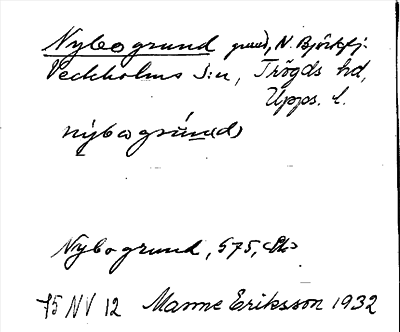 Nybogrund grund, N. Björkfj.
Veckholms S:n, Trögds hd,
Upps. l.
nỳbogrún(d)
Nybogrund, 575,
75 NV 12 Manne Eriksson 1932